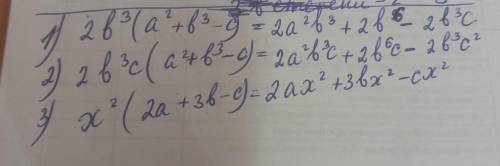 1) 2b³(a²+b³-c) = 2a²b³ + 2b⁶ - 2b³c
2) 2b³c(a²+b³-c) = 2a²b³c + 2b⁶c - 2b³c²
3) x²(2a+3b-c) = 2ax² + 3bx² - cx²